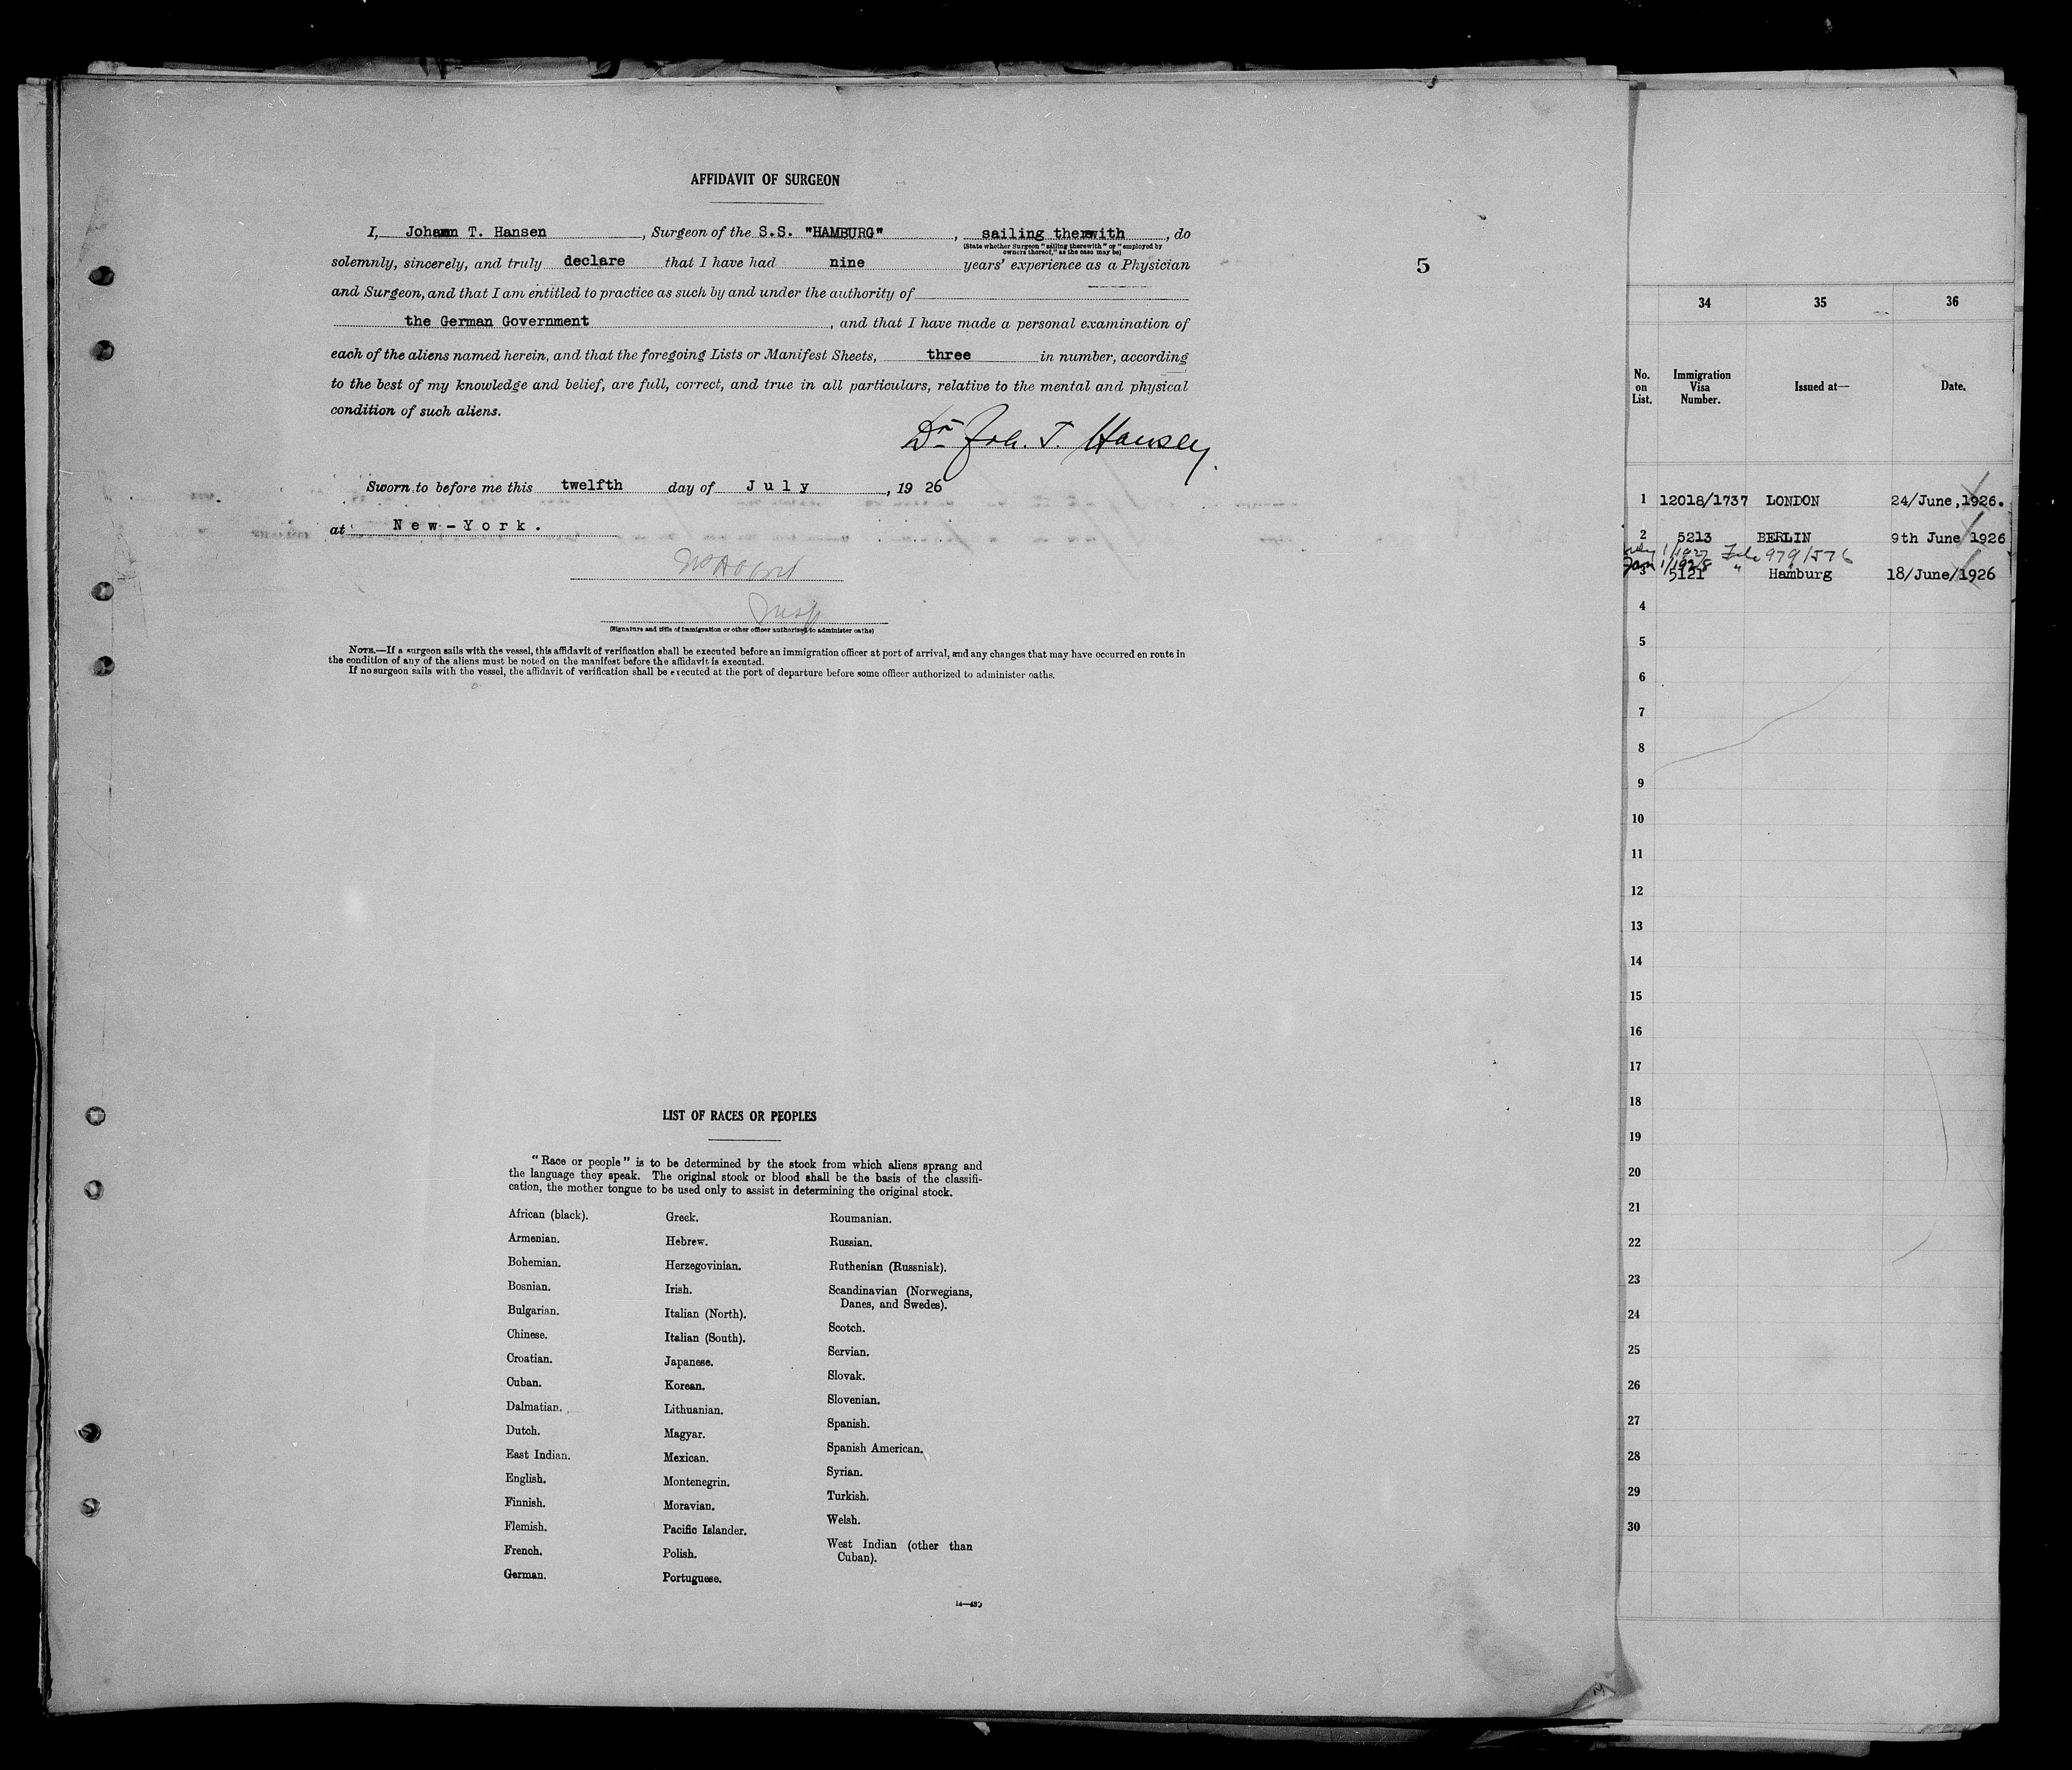 AFFIDAVIT OF SURGEON
I, Johann T. Hansen, Surgeon of the S.S. "HAMBURG", sailing therewith, do
(State whether Surgeon "sailing therewith" or "employed by
owners thereof," as the case may be)
solemnly, sincerely, and truly declare that I have had nine years' experience as a Physician
and Surgeon, and that I am entitled to practice as such by and under the authority of
the German Government, and that I have made a personal examination of
each of the aliens named herein, and that the foregoing Lists or Manifest Sheets, three in number, according
to the best of my knowledge and belief, are full, correct, and true in all particulars, relative to the mental and physical
condition of such aliens.
Dr Joh. T. Hansen.
Sworn to before me this twelfth day of July, 1926
at New-York.
Insp
(Signature and title of immigration or other officer authorized to administer oaths)
NOTE.—If a surgeon sails with the vessel, this affidavit of verification shall be executed before an immigration officer at port of arrival, and any changes that may have occurred en route in
the condition of any of the aliens must be noted on the manifest before the affidavit is executed.
If no surgeon sails with the vessel, the affidavit of verification shall be executed at the port of departure before some officer authorized to administer oaths.
5
LIST OF RACES OR PEOPLES
"Race or people" is to be determined by the stock from which aliens sprang and
the language they speak. The original stock or blood shall be the basis of the classifi-
cation, the mother tongue to be used only to assist in determining the original stock.
African (black).
Armenian.
Bohemian.
Bosnian.
Bulgarian.
Chinese.
Croatian.
Cuban.
Dalmatian.
Dutch.
East Indian.
English.
Finnish.
Flemish.
French.
German.
Greek.
Hebrew.
Herzegovinian.
Irish.
Italian (North).
Italian (South).
Japanese.
Korean.
Lithuanian.
Magyar.
Mexican.
Montenegrin.
Moravian.
Pacific Islander.
Polish.
Portuguese.
Roumanian.
Russian.
Ruthenian (Russniak).
Scandinavian (Norwegians,
Danes, and Swedes).
Scotch.
Servian.
Slovak.
Slovenian.
Spanish.
Spanish American.
Syrian.
Turkish.
Welsh.
West Indian (other than
Cuban).
14—480
34 35 36
No.
on
List.
Immigration
Visa
Number.
Issued at—
Date.
1 12018/1737 LONDON 24/June,1926.
2 5213 BERLIN 9th June 1926
1/1927 File 979/576
Jan 1/1928 "
3 5121 Hamburg 18/June/1926
4
5
6
7
8
9
10
11
12
13
14
15
16
17
18
19
20
21
22
23
24
25
26
27
28
29
30